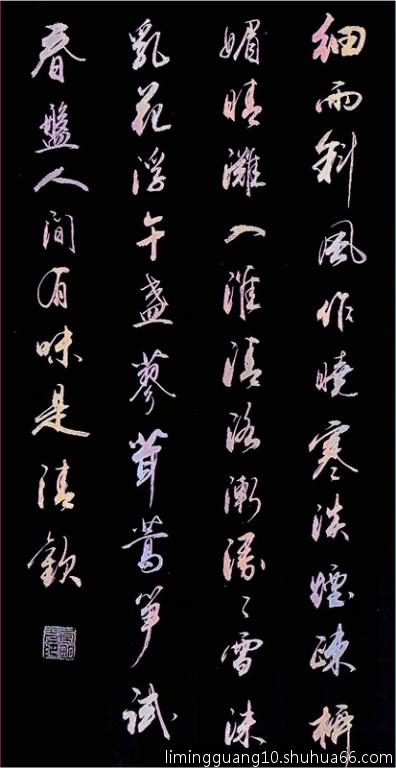 細雨斜風作曉寒淡煙疎柳
媚晴灘入淮清洛漸漫〻雪沫
乳花浮午盞蓼茸蒿笋試
春盤人間有味是清歡
limingguang10.shuhua66.com